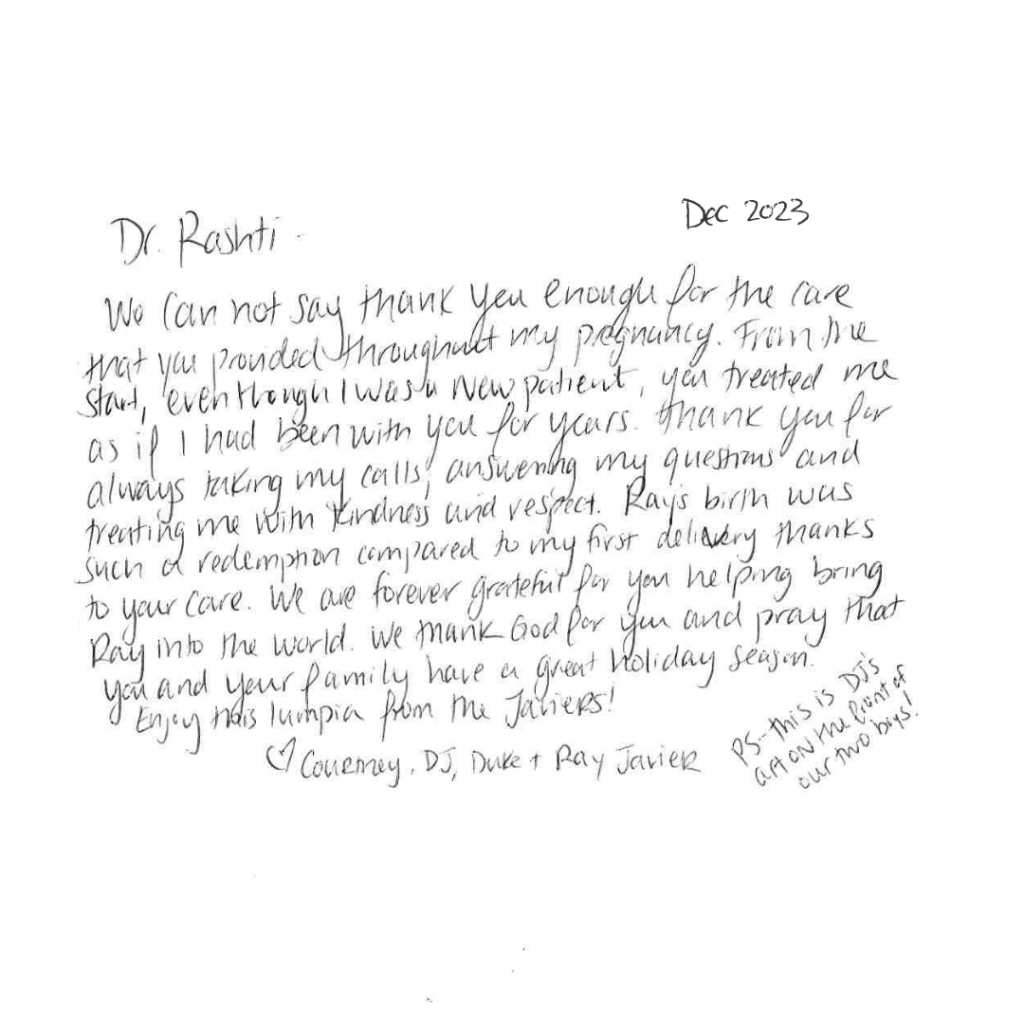 Dec 2023
Dr. Rashti -
We can not say thank you enough for the care
that you provided throughout my pregnancy. From the
start, even though I was a new patient, you treated me
as if I had been with you for years. Thank you for
always taking my calls, answering my questions and
treating me with kindness and respect. Ray's birth was
such a redemption compared to my first delivery thanks
to your care. We are forever grateful for you helping bring
Ray into the world. We thank God for you and pray that
you and your family have a great holiday season.
Enjoy this lumpia from the Javiers!
♡ Courtney, DJ, Duke + Ray Javier
PS - this is DJ's
art on the front of
our two boys!